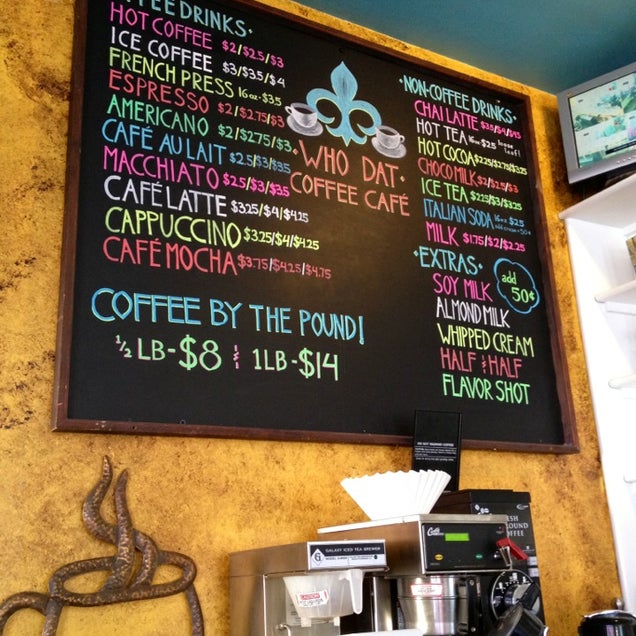 FEE DRINKS:
HOT COFFEE $2/$2.5/$3
ICE COFFEE $3/$3.5/$4
FRENCH PRESS 16oz-$3.5
ESPRESSO $2/$2.75/$3
AMERICANO $2/$2.75/$3
CAFÉ AU LAIT $2.5/$3/$3.5
MACCHIATO $2.5/$3/$3.5
CAFÉ LATTE $3.25/$4/$4.25
CAPPUCCINO $3.25/$4/$4.25
CAFÉ MOCHA $3.75/$4.25/$4.75
COFFEE BY THE POUND!
½ LB-$8 & 1LB-$14
·WHO DAT·
COFFEE CAFÉ
·NON-COFFEE DRINKS·
CHAI LATTE $3.5/$4/$4.5
HOT TEA 16oz $2.5 loose leaf!
HOT COCOA $2.25/$2.75/$3.25
CHOCO MILK $2/$2.5/$3
ICE TEA $2.5/$3/$3.25
ITALIAN SODA 16oz $2.5
add cream +50¢
MILK $1.75/$2/$2.25
·EXTRAS·
add 50¢
SOY MILK
ALMOND MILK
WHIPPED CREAM
HALF & HALF
FLAVOR SHOT
GALAXY ICED TEA BREWER
CAUTION
Curtis
ESH
OUND
FFEE